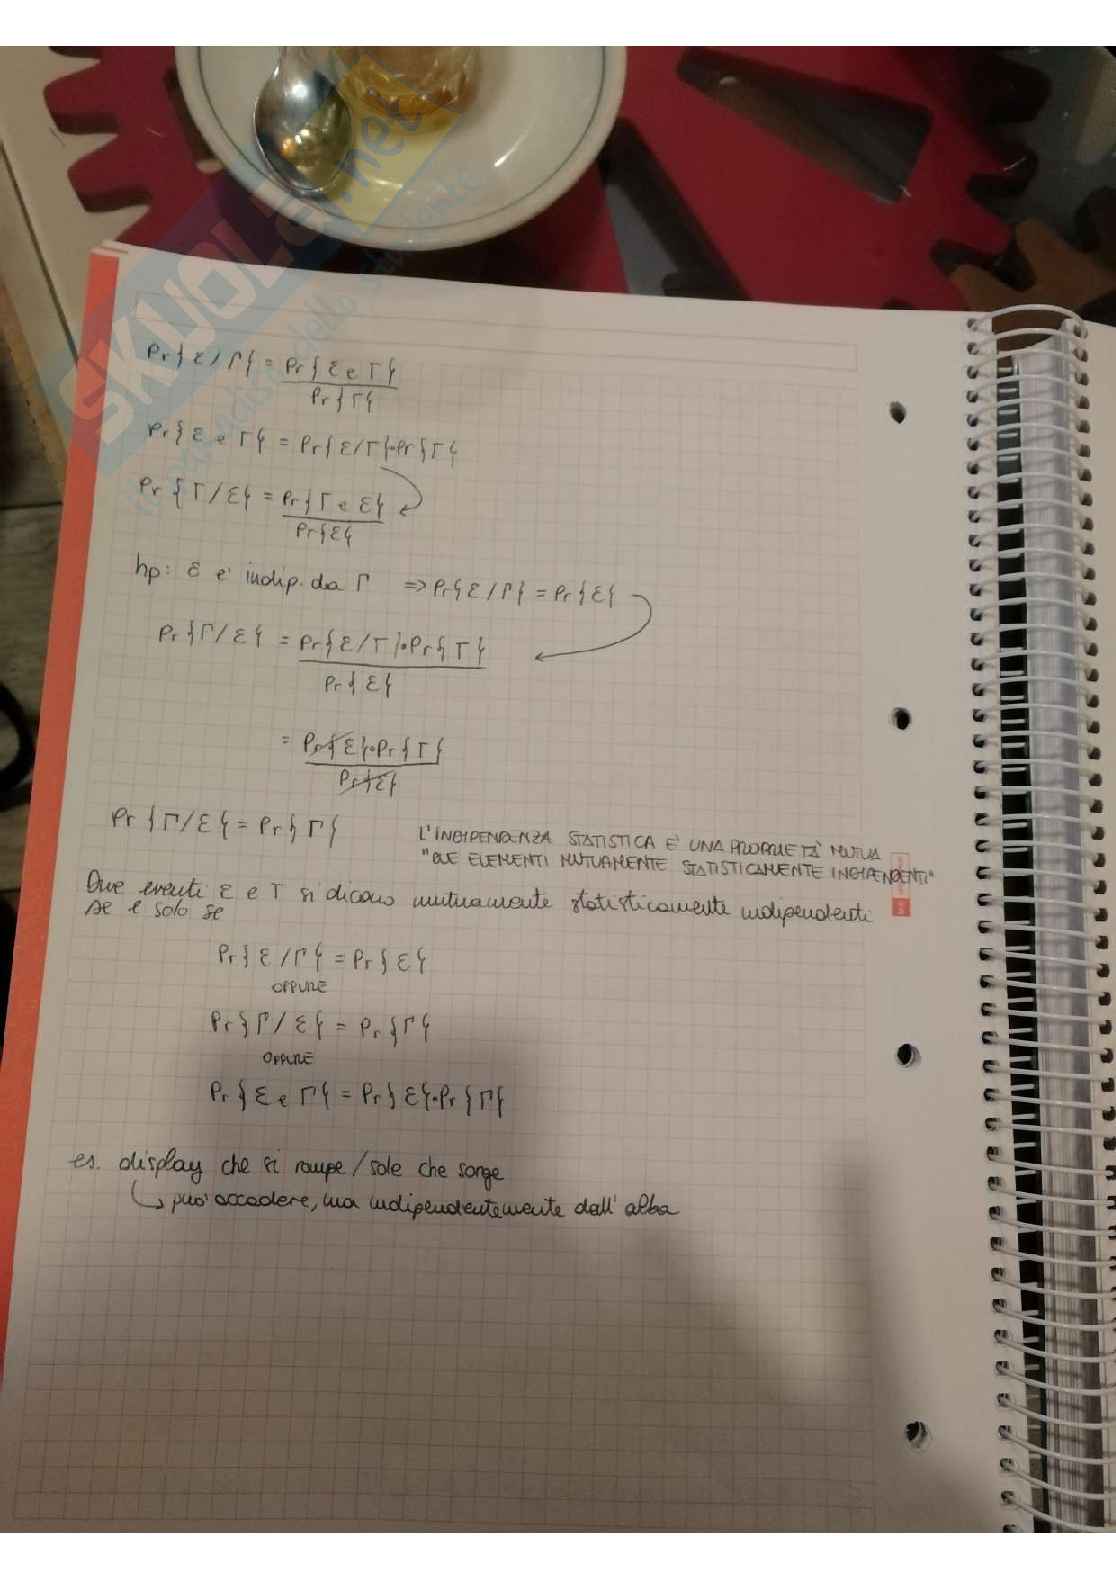 SKUOLA.net
Pr{ε/Γ} = Pr{ε e Γ}
Pr{Γ}
Pr{ε e Γ} = Pr{ε/Γ}•Pr{Γ}
Pr{Γ/ε} = Pr{Γ e ε}
Pr{ε}
hp: ε e' indip. da Γ ⇒ Pr{ε/Γ} = Pr{ε}
Pr{Γ/ε} = Pr{ε/Γ}•Pr{Γ}
Pr{ε}
= Pr{ε}•Pr{Γ}
Pr{ε}
Pr{Γ/ε} = Pr{Γ}
L'INDIPENDENZA STATISTICA E' UNA PROPRIETA' MUTUA
"DUE ELEMENTI MUTUAMENTE STATISTICAMENTE INDIPENDENTI"
Due eventi ε e Γ si dicono mutuamente statisticamente indipendenti
se e solo se
Pr{ε/Γ} = Pr{ε}
OPPURE
Pr{Γ/ε} = Pr{Γ}
OPPURE
Pr{ε e Γ} = Pr{ε}•Pr{Γ}
es. display che si rompe/sole che sorge
può accadere, ma indipendentemente dall'alba